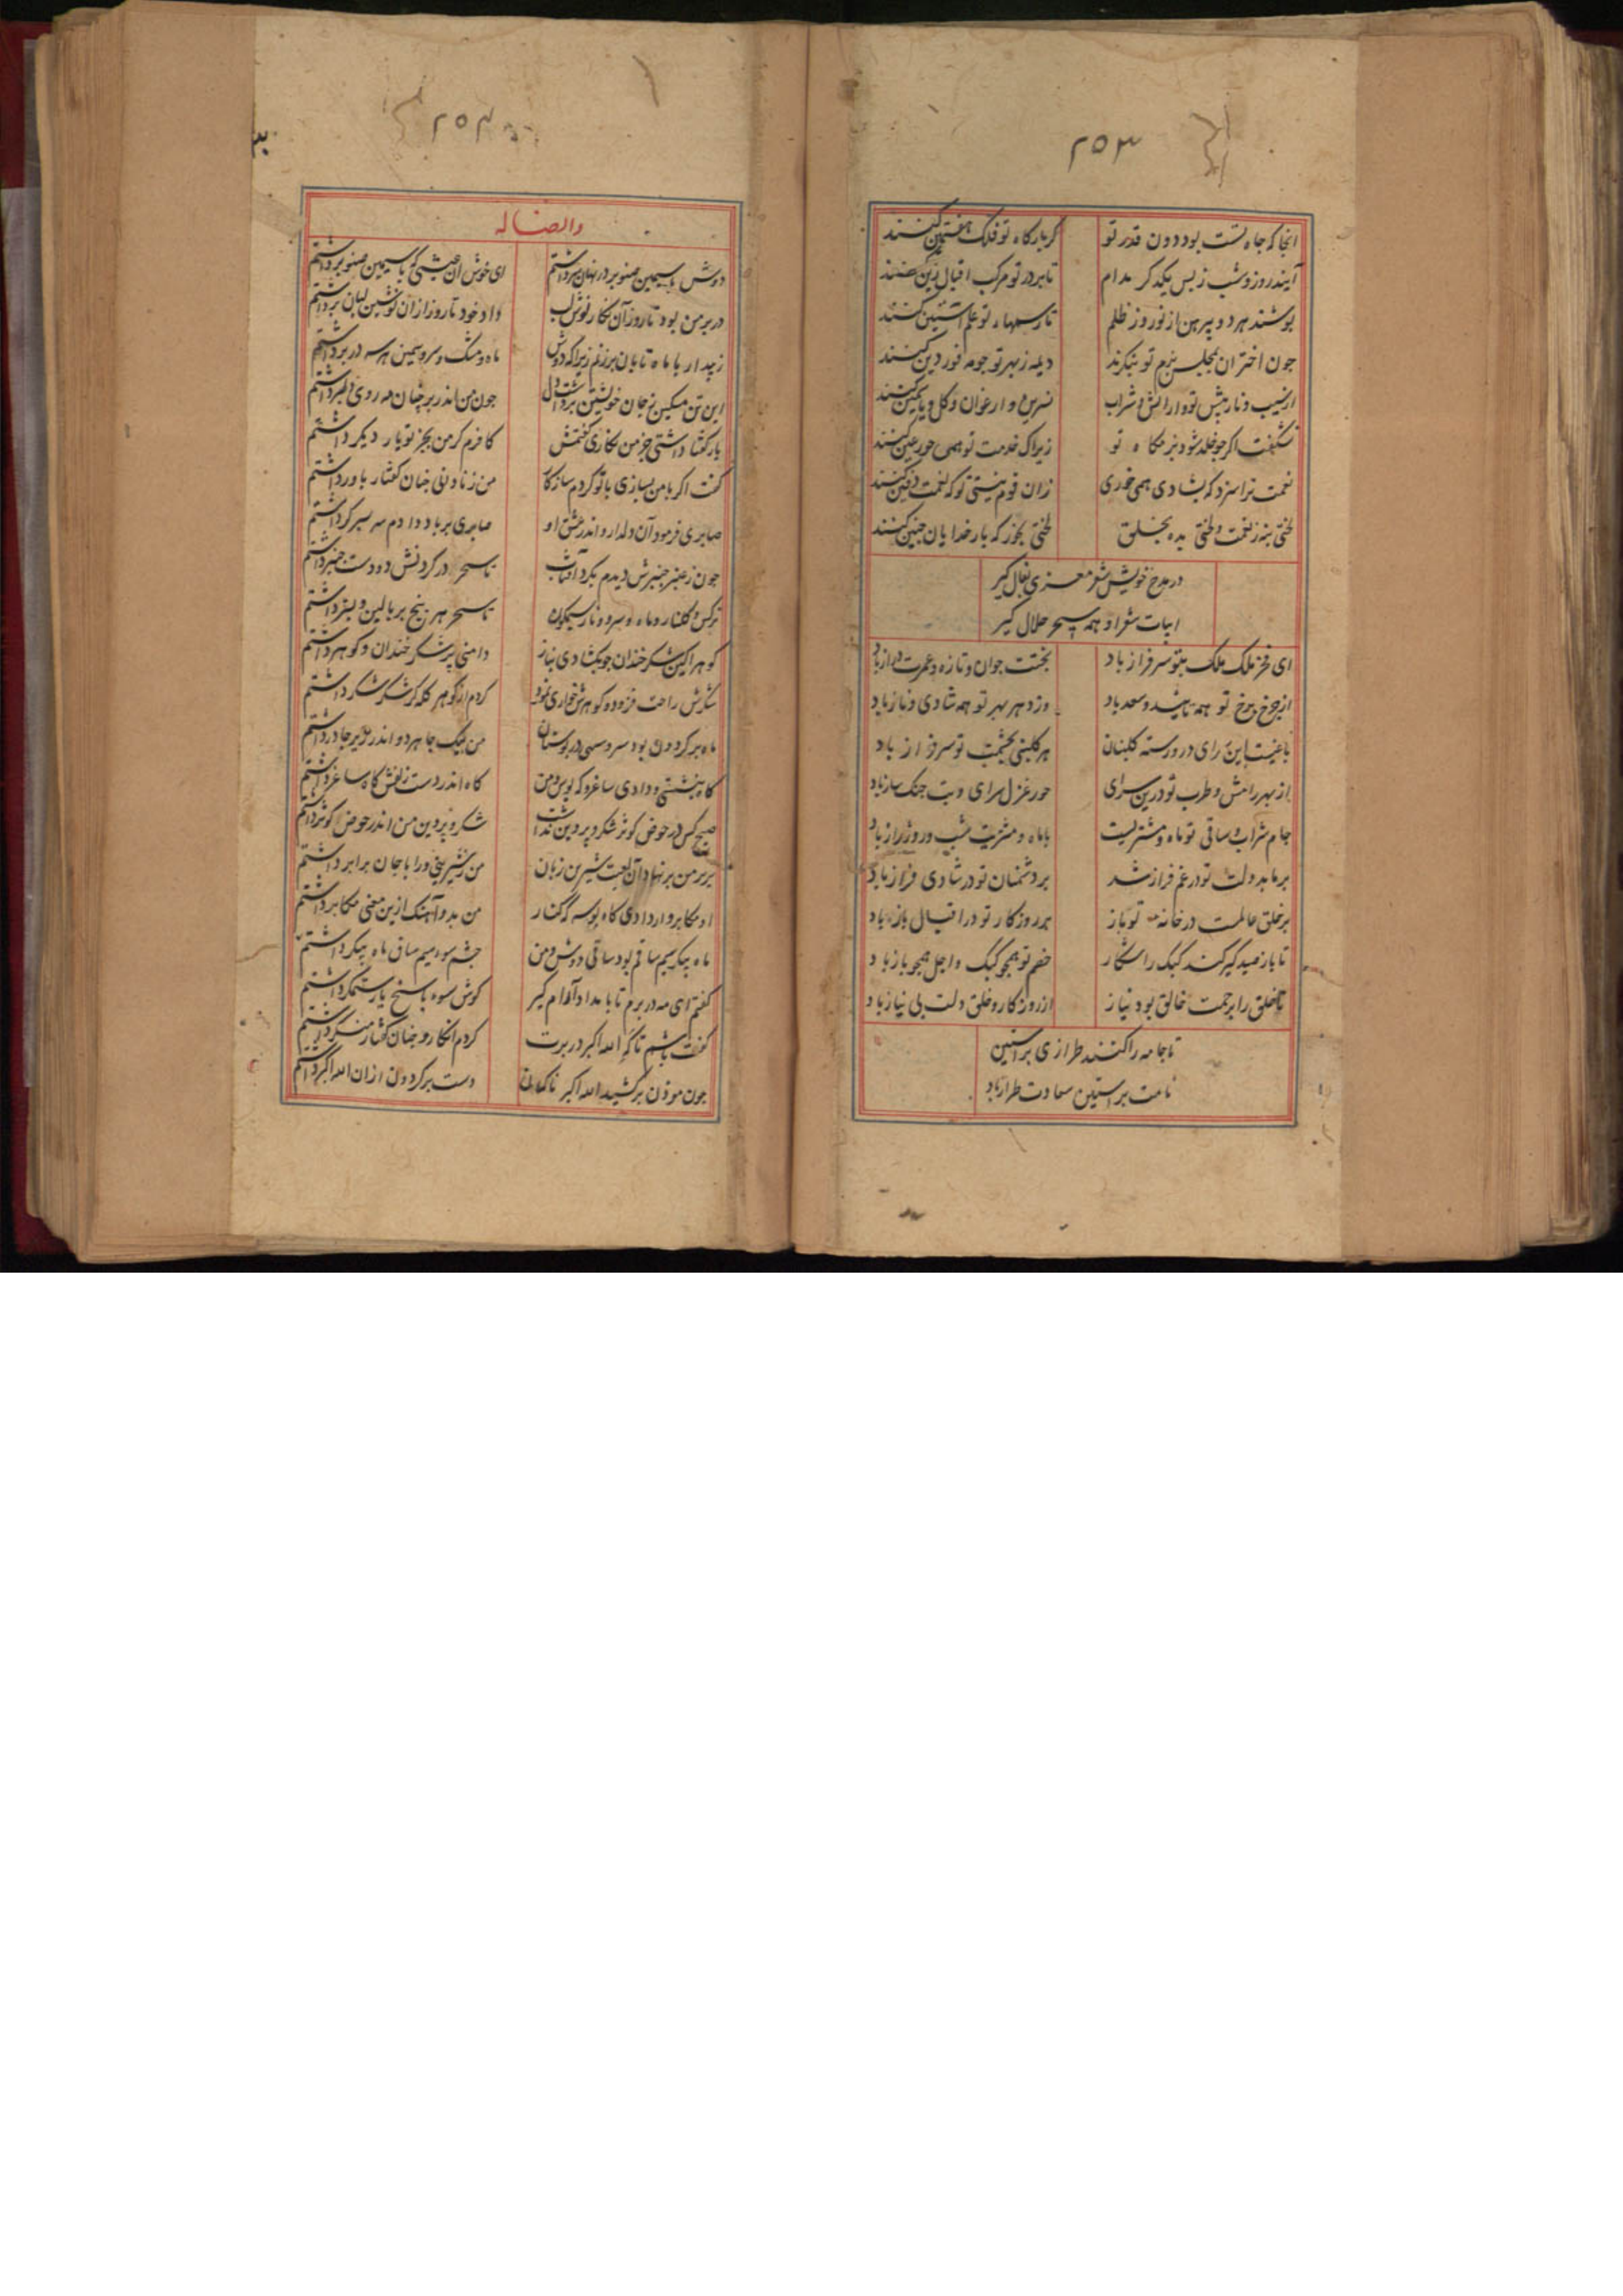 ۲۵۳
آنجا که جاه تست بود دون قدر تو
کر بارکاه تو فلک هفتمین کنند
آیند روز و شب ز پس یکدکر مدام
تا بر در تو مرکب اقبال زین کنند
پوشند هر دو پیرهن از نور و ز ظلم
تا بر سپاه تو علم آستین کنند
جون اختران بمجلس بزم تو بنکرند
نسرین و ارغوان و کل و یاسمین کنند
شکفت اکر جو خلد شود بزمکاه تو
زیراک خدمت تو همی حور عین کنند
نعمت ترا سزد که بشادی همی خوری
زان قوم نیستی تو که نعمت دفین کنند
لختی بنه ز نعمت و لختی بده بخلق
لختی بخور که بار خدایان جنین کنند
در مدح خویش شعر معزی بفال کیر
ابیات شعر او همه سحر حلال کیر
ای فخر ملک ملک بتو سرفراز باد
بختت جوان و تازه و عمرت دراز باد
از جرخ برخ تو همه ناهید و سعد باد
وز دهر بهر تو همه شادی و ناز باد
با غیست این سرای درو رسته کلبنان
هر کلبنی بخدمت تو سرفراز باد
از بهر رامش و طرب تو درین سرای
حور غزل سرای و بت جنک ساز باد
جام شراب و ساقی تو ماه و مشتریست
با ماه و مشتریت شب و روز راز باد
بر ما بدولت تو در غم فراز شد
بر دشمنان تو در شادی فراز باد
بر خلق عالمست در خانه تو باز
هر روز کار تو در اقبال باز باد
تا باز صید کیر کند کبک را شکار
خصم تو همجو کبک و اجل همجو باز باد
تا خلق را برحمت خالق بود نیاز
از روزکار و خلق دلت بی نیاز باد
تا جامه را کنند طرازی بر آستین
نامت بر آستین سعادت طراز باد
۲۵۴
وایضاً له
دوش با سیمین صنوبر در نهان سر داشتم
ای خوش آن عیشی که با سیمین صنوبر داشتم
در بر من بود تا روز آن نکار نوش لب
داد خود تا روز ازان نوشین لبان برداشتم
زیبد ار با ماه تابان برزنم زیرا که دوش
ماه و مشک و سرو سیمین هر سه در بر داشتم
این تن مسکین ز جان خویشتن برداشت دل
جون من اندر بر جنان مه روی دلبر داشتم
یار کفتا داشتی جز من نکاری کفتمش
کافرم کر من بجز تو یار دیکر داشتم
کفت اکر با من بسازی با تو کردم سازکار
من ز نادانی جنان کفتار باور داشتم
صابری فرمود آن دلدار و اندر عشق او
صابری بر باد دادم مهر سر کر داشتم
جون ز عنبر جنبرش دیدم بکرد آفتاب
تا سحر در کردنش دو دست جنبر داشتم
نرکس و کلنار و ماه و سرو و نار سیمکون
تا سحر هر پنج بر بالین و بستر داشتم
دامنی پر شکر خندان و کوهر داشتم
شکرش راحت فزود و کوهرش خواری نمود
ماه بر کردون بود سرو سهی در بوستان
من بیک جا هر دو اندر زیر جادر داشتم
کاه بنشستی و دادی ساغر و که بوس و من
کاه اندر دست زلفش کاه ساغر داشتم
هیج کس در حوض کوثر شکر و پروین نداشت
شکر و پروین من اندر حوض کوثر داشتم
بر بر من بر نهاد آن لعبت شیرین زبان
من ز شیرینی ورا با جان برابر داشتم
من بدو آهنک ازین معنی مکابر داشتم
ماه پیکر سیم ساقم بود ساقی دوش و من
جشم سوء سیم ساق ماه پیکر داشتم
کفتم ای مه در برم تا بامداد آرام کیر
کوش سوء پاسخ یار ستمکر داشتم
کفت باشم تا که الله اکبر در برت
جون موذن برکشید الله اکبر ناکهان
دست بر کردون ازان الله اکبر داشتم